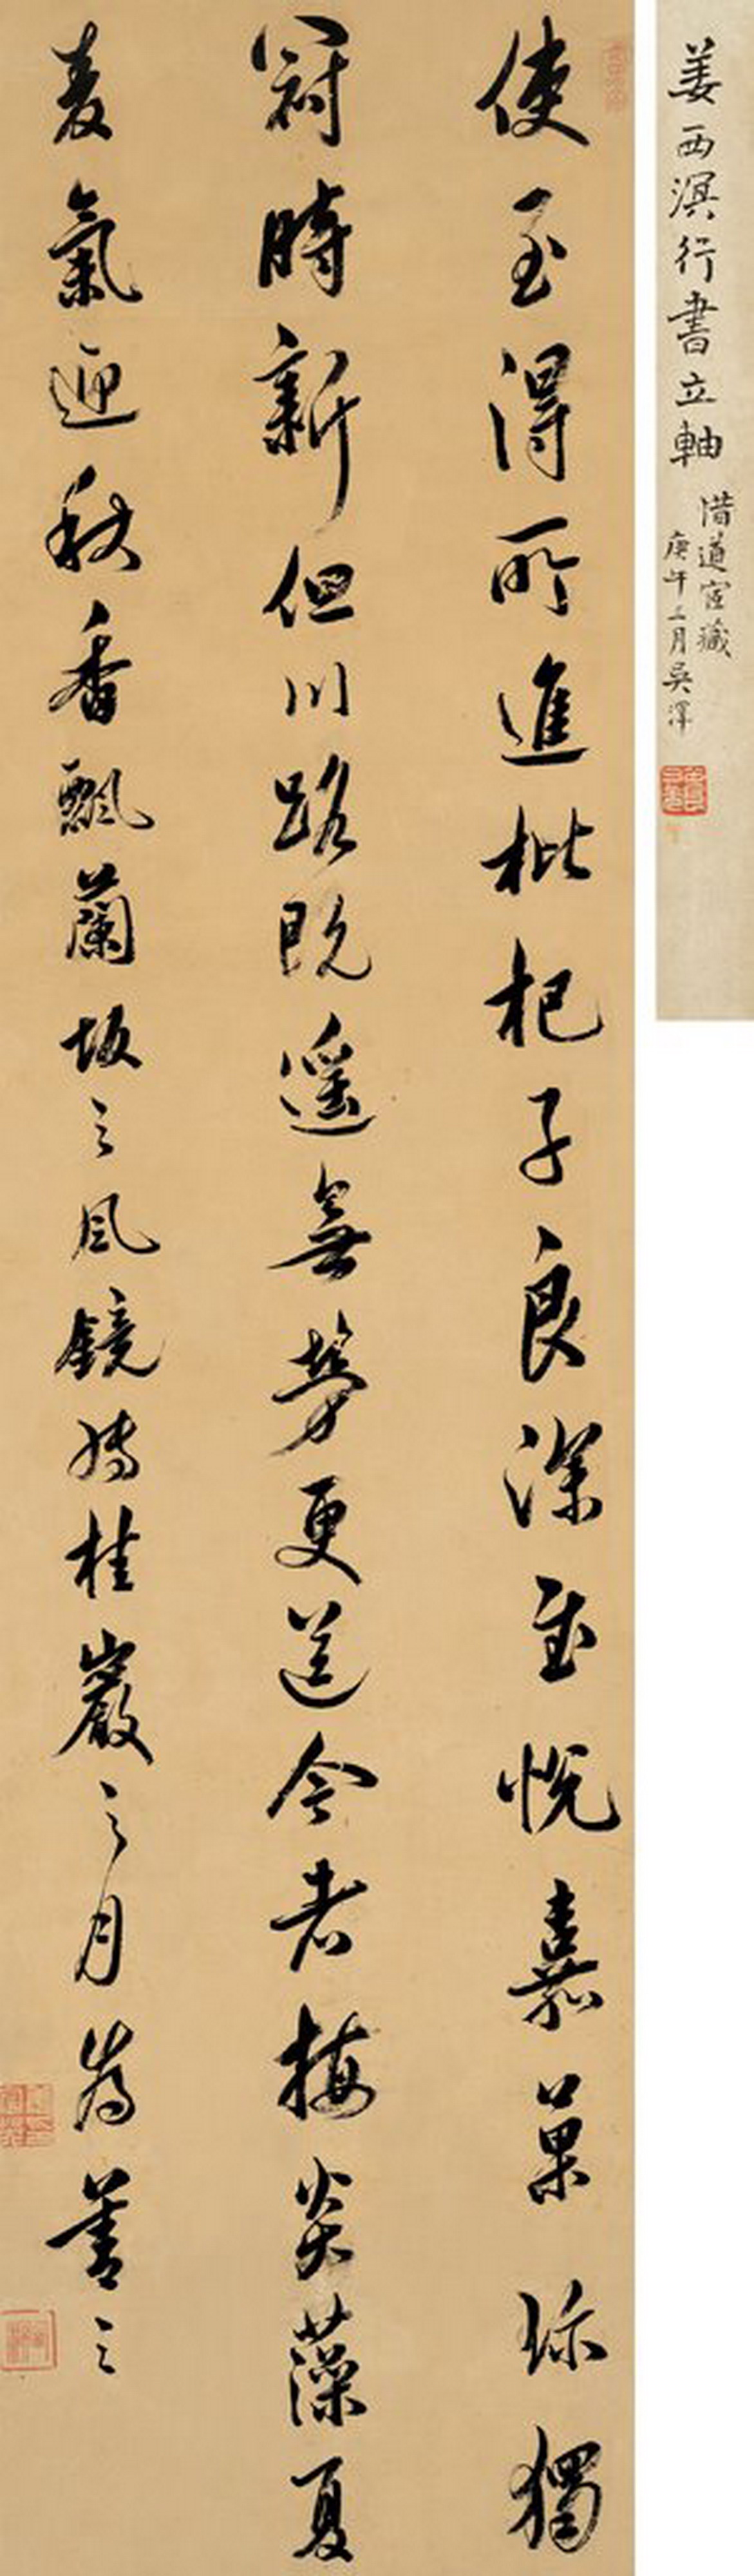 姜西溟行書立軸
惜道室藏
庚午二月吳渾
使至得所進枇杷子良深至悅嘉菓珍獨
冠時新但川路既遙無勞更送今者梅炎藻夏
麦氣迎秋香飄蘭坂之風鏡轉桂巖之月為善之